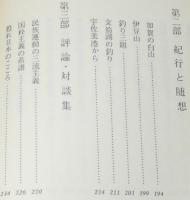 第二部 紀行と随想
加賀の白山 194
伊豆山 199
釣り三題 201
文協湖の釣り 211
宇佐美港から 214
第三部 評論・対談集
民族運動の三流主義 220
国粋主義の系譜 226
甦れ日本のこころ 238